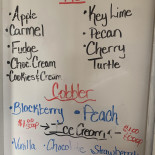 • Apple
• Carmel
• Fudge
• Choc. Cream
• Cookies & Cream
• Key Lime
• Pecan
• Cherry
• Turtle
Cobbler
• Blackberry
• Peach
Ice Cream
Vanilla • Chocol • Strawberry